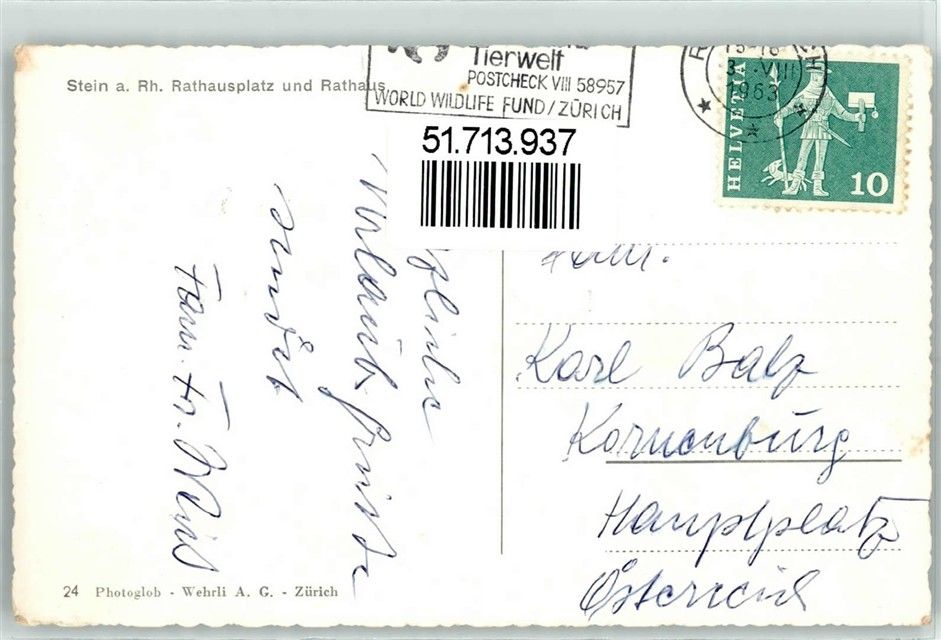 Stein a. Rh. Rathausplatz und Rathaus
Tierwelt
POSTCHECK VIII 58957
WORLD WILDLIFE FUND/ZÜRICH
15-16
3. VIII
1963
HELVETIA
10
51.713.937
Urlaubsgrüsse
sendet
Fam. Fr.
Fam.
Karl Balz
Korneuburg
Hauptplatz
Österreich
24 Photoglob - Wehrli A. G. - Zürich